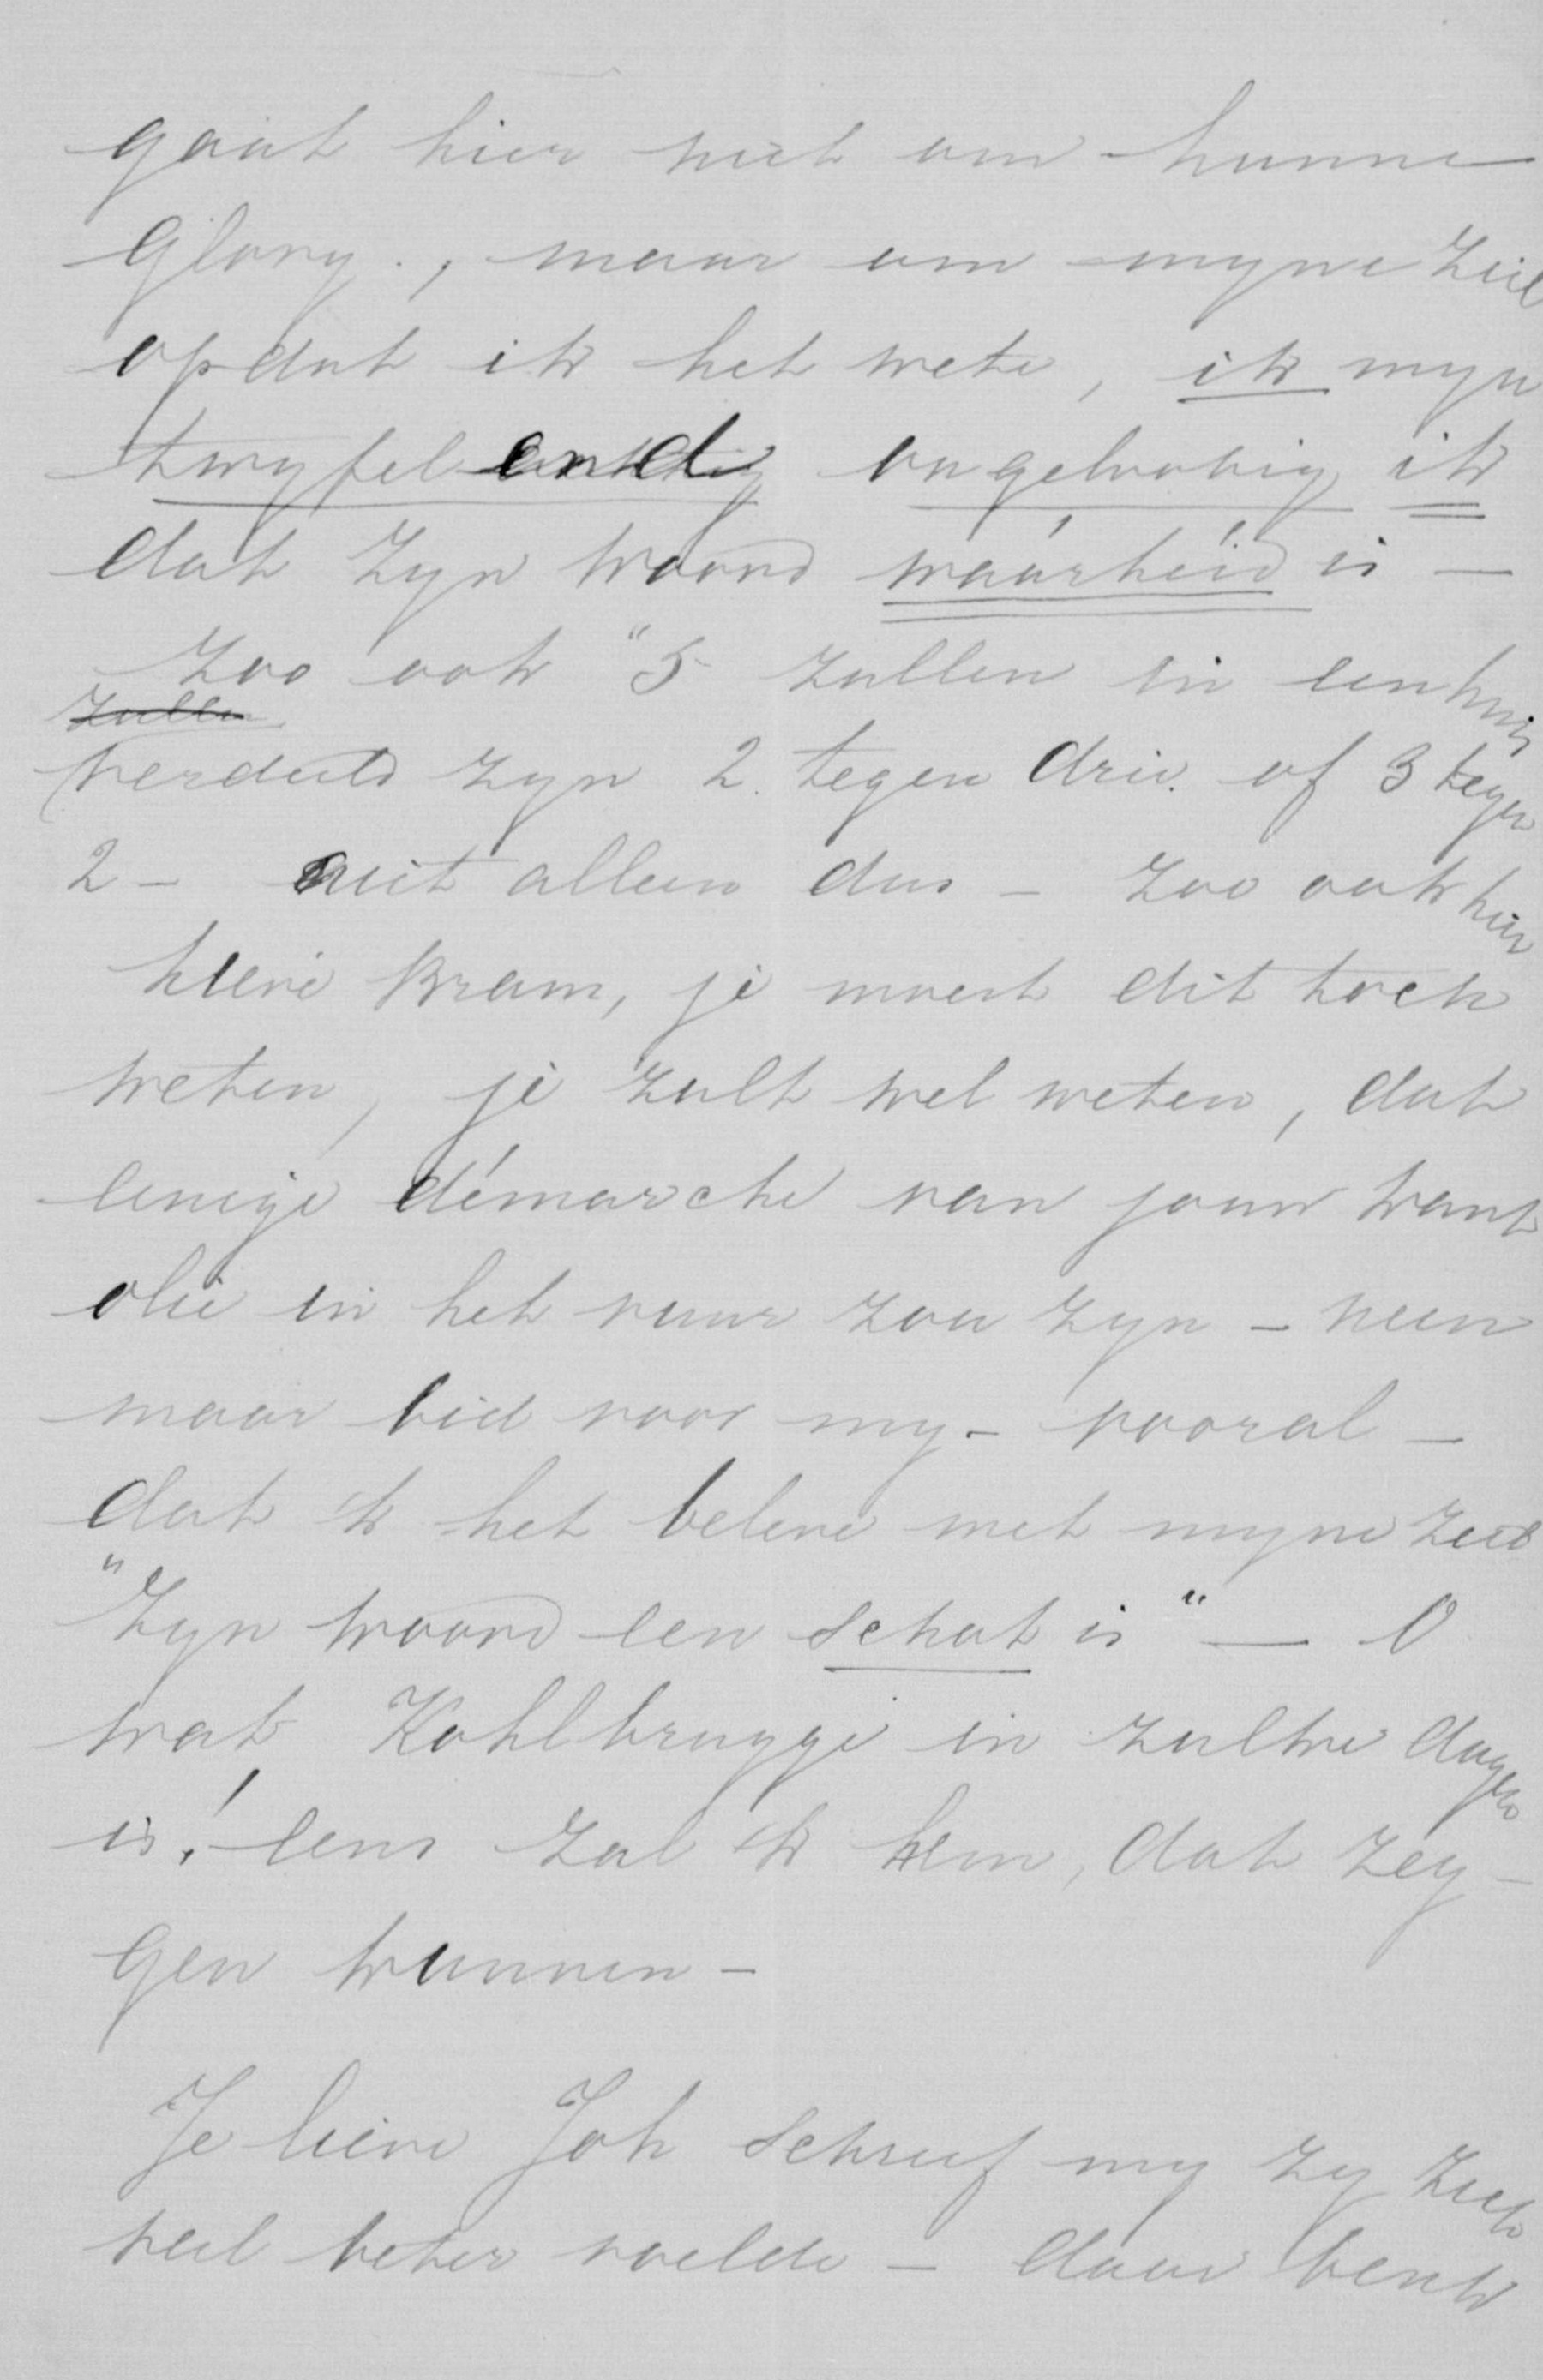 gaat hier niet om hunne
glory., maar om myne ziel
opdat ik het wete, ik myn
twyfelend ongeloovig ik
dat Zyn woord waarheid is —
Zoo ook "5 zullen in een huis
zullen
verdeeld zyn 2 tegen drie. of 3 tegen
2 — niet alleen dus — zoo ook hier
lieve Bram, je moest dit toch
weten, je zult wel weten, dat
eenige démarche van jouw kant
olie in het vuur zou zyn — neen
maar bid voor my — vooral —
dat ik het beleve met myne ziel
"Zyn woord een schat is" — O
wat Kohlbrugge in zulke dagen
is! eens zal ik hem, dat zeg-
gen kunnen —
Je lieve Joh schreef my zy zich
veel beter voelde — daar benk